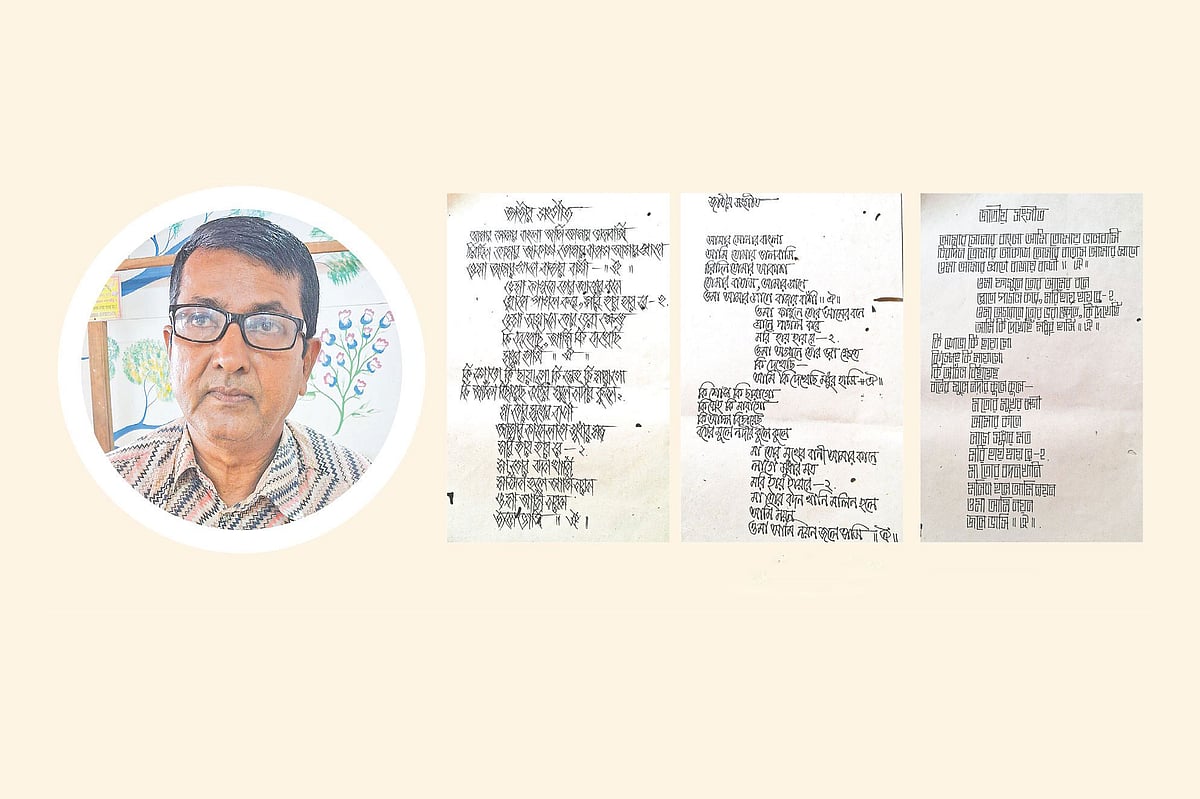 জাতীয় সংগীত
আমার সোনার বাংলা আমি তোমায় ভালবাসি
চিরদিন তোমার আকাশ তোমার বাতাস আমার প্রাণে
ওমা আমার প্রাণে বাজায় বাশী ॥ ঐ ॥
ওমা ফাগুনে তোর আমের বনে
ঘ্রাণে পাগল করে, মরি হায় হায় রে - ২.
ওমা অঘ্রাণে তোর ভরা ক্ষেতে
কি দেখেছি, আমি কি দেখেছি
মধুর হাসি ॥ ঐ ॥
কি শোভা কি ছায়া গো কি স্নেহ কি মায়া গো
কি আচল বিছায়েছ বটের মূলে নদীর কুলে ২
মা তোর মুখের বাণী
আমার কানে লাগে সুধার মত
মরি হায় হায় রে - ২.
মা তোর বদন খানি
মলিন হলে আমি নয়ন
ওমা আমি নয়ন
জলে ভাসি ॥ ঐ ॥
জাতীয় সংগীত
আমার সোনার বাংলা
আমি তোমায় ভালবাসি.
চিরদিন তোমার আকাশ
তোমার বাতাস, আমার প্রাণে
ওমা আমার প্রাণে বাজায় বাশী ॥ ঐ ॥
ওমা ফাগুনে তোর আমের বনে
ঘ্রাণে পাগল করে
মরি হায় হায় রে - ২.
ওমা অঘ্রাণে তোর ভরা ক্ষেতে
কি দেখেছি -
আমি কি দেখেছি মধুর হাসি ॥ ঐ ॥
কি শোভা কি ছায়াগো
কি স্নেহ কি মায়াগো
কি আচল বিছায়েছ
বটের মূলে নদীর কূলে কূলে
মা তোর মুখের বানী আমার কানে
লাগে সুধার মত
মরি হায় হায়রে - ২.
মা তোর বদন খানি মলিন হলে
আমি নয়ন
ওমা আমি নয়ন জলে ভাসি ॥ ঐ ॥
জাতীয় সংগীত
আমার সোনার বাংলা আমি তোমায় ভালবাসি
চিরদিন তোমার আকাশ তোমার বাতাস আমার প্রাণে
ওমা আমার প্রাণে বাজায় বাশী ॥ ঐ ॥
ওমা ফাগুনে তোর আমের বনে
ঘ্রাণে পাগল করে, মরি হায় হায় রে - ২
ওমা অঘ্রাণে তোর ভরা ক্ষেতে, কি দেখেছি
আমি কি দেখেছি মধুর হাসি ॥ ঐ ॥
কি শোভা কি ছায়া গো
কি স্নেহ কি মায়া গো
কি আচল বিছায়েছ
বটের মূলে নদীর কূলে কূলে -
মা তোর মুখের বাণী
আমার কানে
লাগে সুধার মত
মরি হায় হায় রে - ২.
মা তোর বদনখানি
মলিন হলে আমি নয়ন
ওমা আমি নয়ন
জলে ভাসি ॥ ঐ ॥